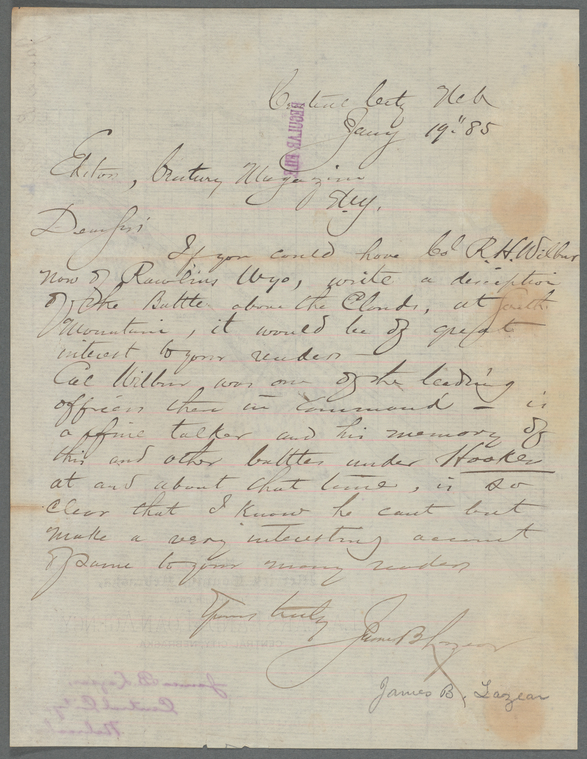 Central City Neb
Jany 19" 85
REGULAR FILE
Editor, Century Magazine
N.Y.
Dear Sir
If you could have Col R. H. Wilbur
now of Rawlins Wyo, write a desciption
of the Battle above the Clouds, at
Mountain, it would be of great
interest to your readers —
Col Wilbur was one of the leading
officers then in command — is
a fine talker and his memory of
this and other battles under Hooker
at and about that time, is so
clear that I know he cant but
make a very interesting account
of same to your many readers
Yours truly
James B Lazear
James B. Lazear
James B. Lazear,
Central City,
Nebraska